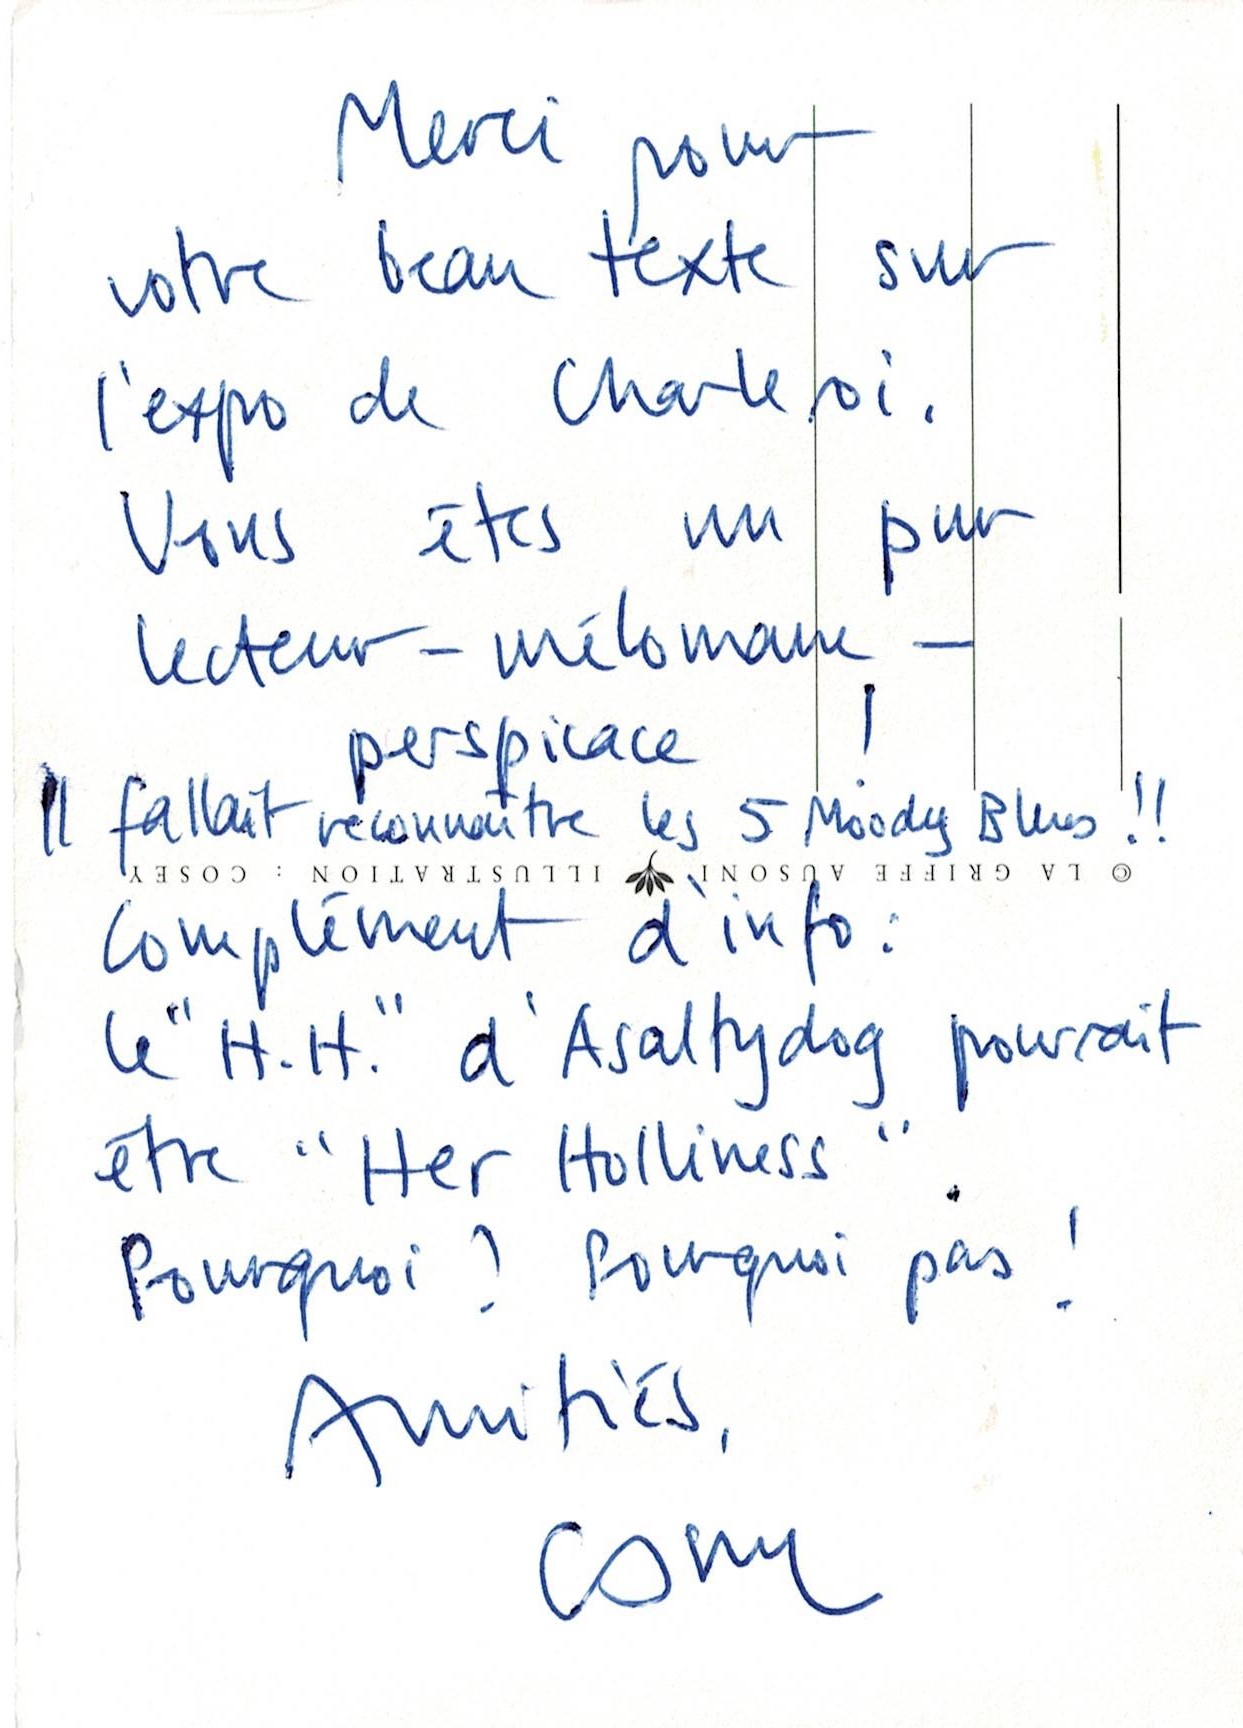 Merci pour
votre beau texte sur
l'expo de Charleroi.
Vous êtes un pur
lecteur - mélomane -
perspicace !
Il fallait reconnaître les 5 Moody Blues !!
© LA GRIFFE AUSONI ILLUSTRATION : COSEY
Complément d'info :
le "H.H." d'Asaltydog pourrait
être "Her Holliness".
Pourquoi ? Pourquoi pas !
Amitiés,
Cosey